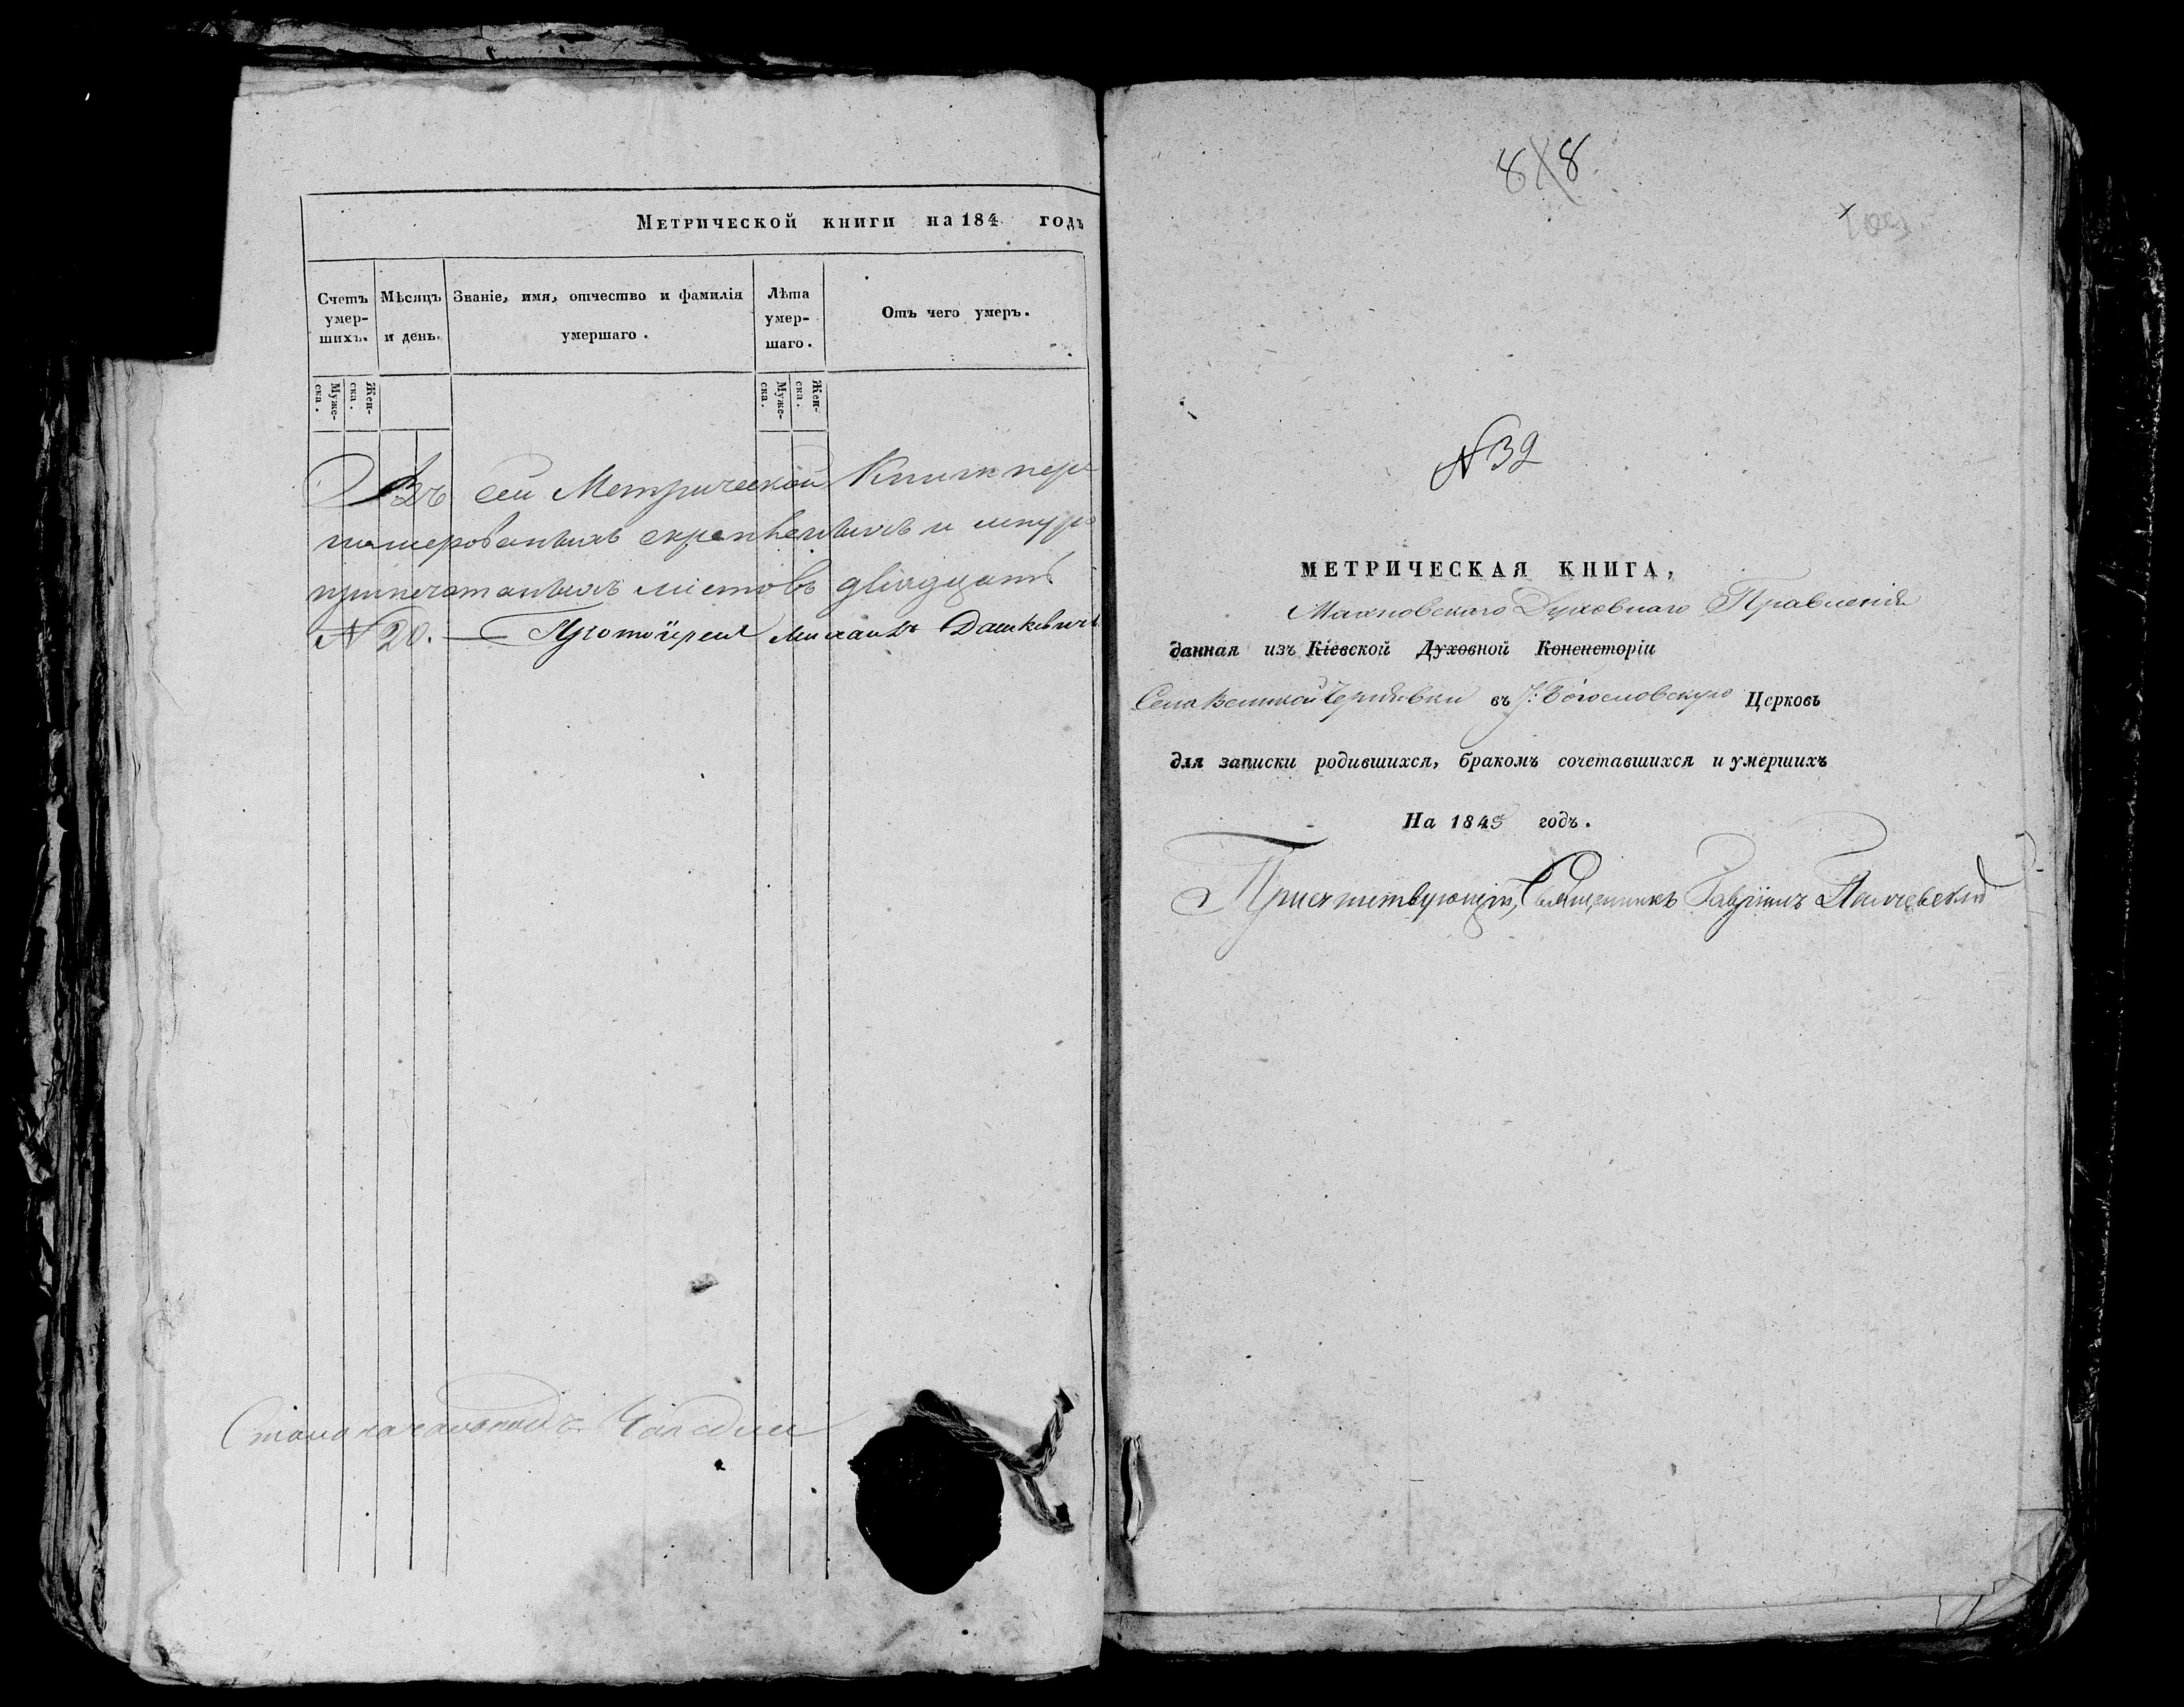 Метрической книги на 184 годъ
Счетъ умер-шихъ.
Мѣсяцъ и день.
Званіе, имя, отчество и фамилія умершаго.
Лѣта умер-шаго.
Отъ чего умеръ.
Муже-ска.
Жен-ска.
Муже-ска.
Жен-ска.
Въ сей Метрической Книгѣ
и шнуро
припечатанныхъ листовъ двадцать
№ 20. Протоіерей Михаилъ Дашкевичъ
Столоначальникъ
8 8
№ 32
МЕТРИЧЕСКАЯ КНИГА,
Махновскаго Духовнаго Правленія
данная изъ Кіевской Духовной Консисторіи
Села Великой Чернявки въ І: Богословскую Церковь
для записки родившихся, бракомъ сочетавшихся и умершихъ
На 1845 годъ.
Присутствующій, Священникъ Гавріилъ